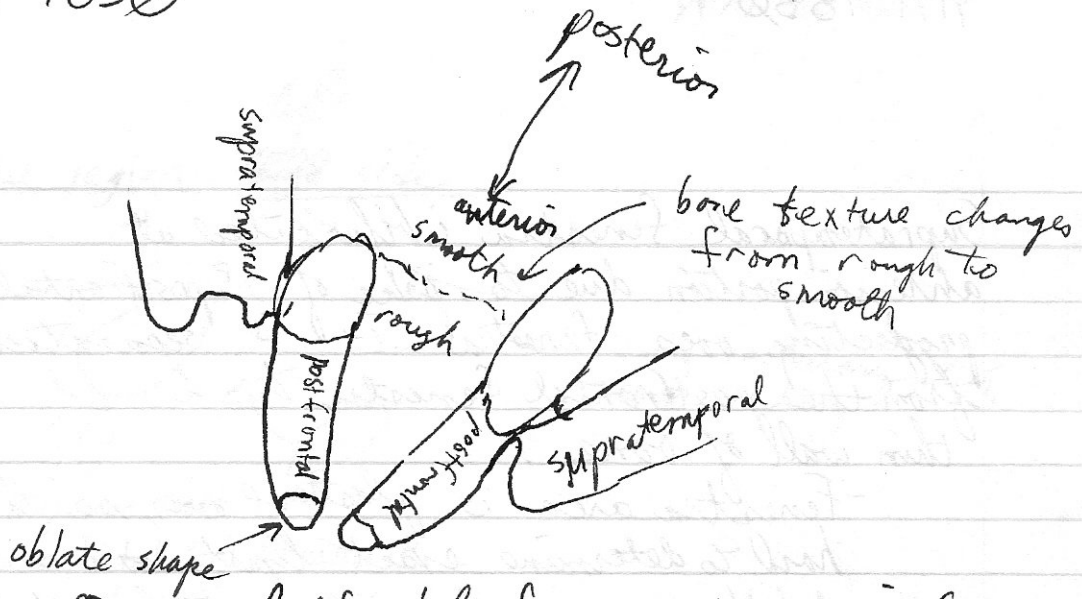 posterior
supratemporal
anterior
smooth
bone texture changes
from rough to
smooth
rough
postfrontal
postfrontal
supratemporal
oblate shape